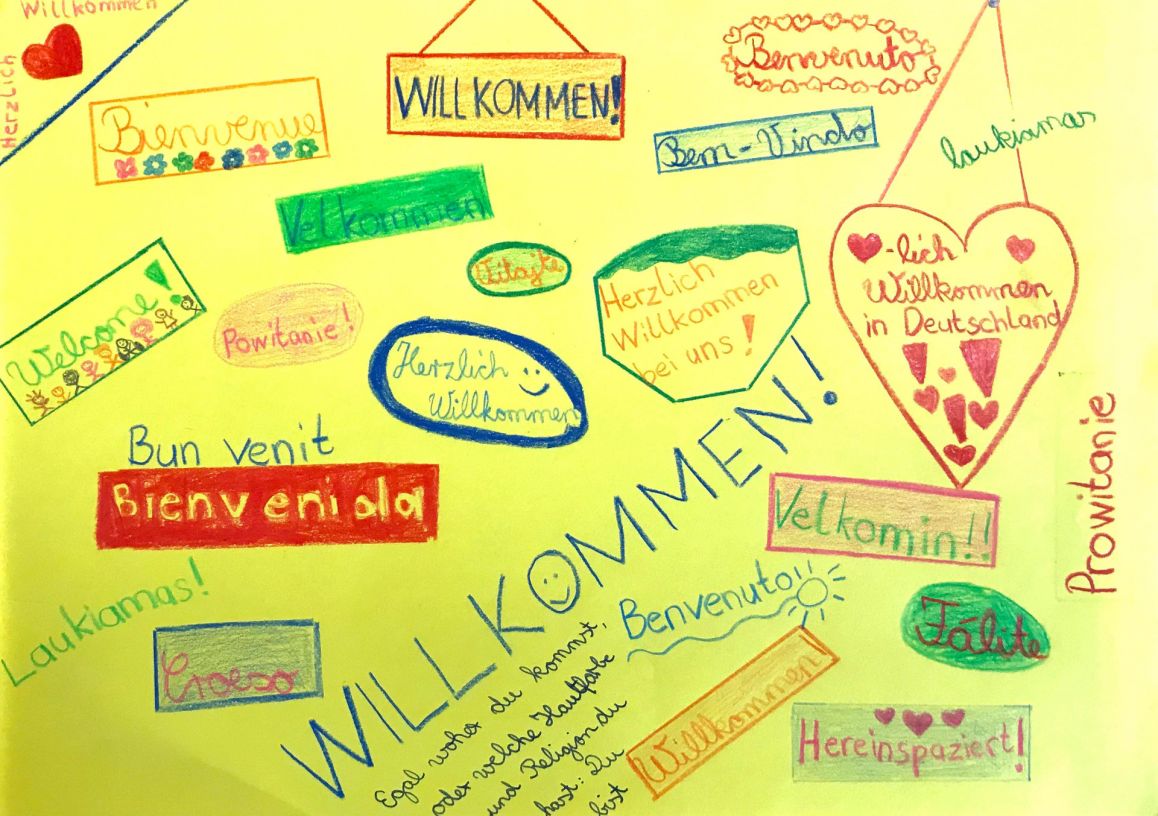 Willkommen
Herzlich
Bienvenue
WILLKOMMEN!
Benvenuto
Bem-Vindo
laukiamas
Velkommen
Vitajte
Herzlich
Willkommen
bei uns!
-lich
Willkommen
in Deutschland
!!!
Welcome!
Powitanie!
Herzlich
Willkommen
Bun venit
Bienvenida
WILLKOMMEN!
Velkomin!!
Prowitanie
Laukiamas!
Croeso
Benvenuto!!
Fálite
Egal woher du kommst,
oder welche Hautfarbe
und Religion du
hast: Du
bist
Willkommen!
Hereinspaziert!